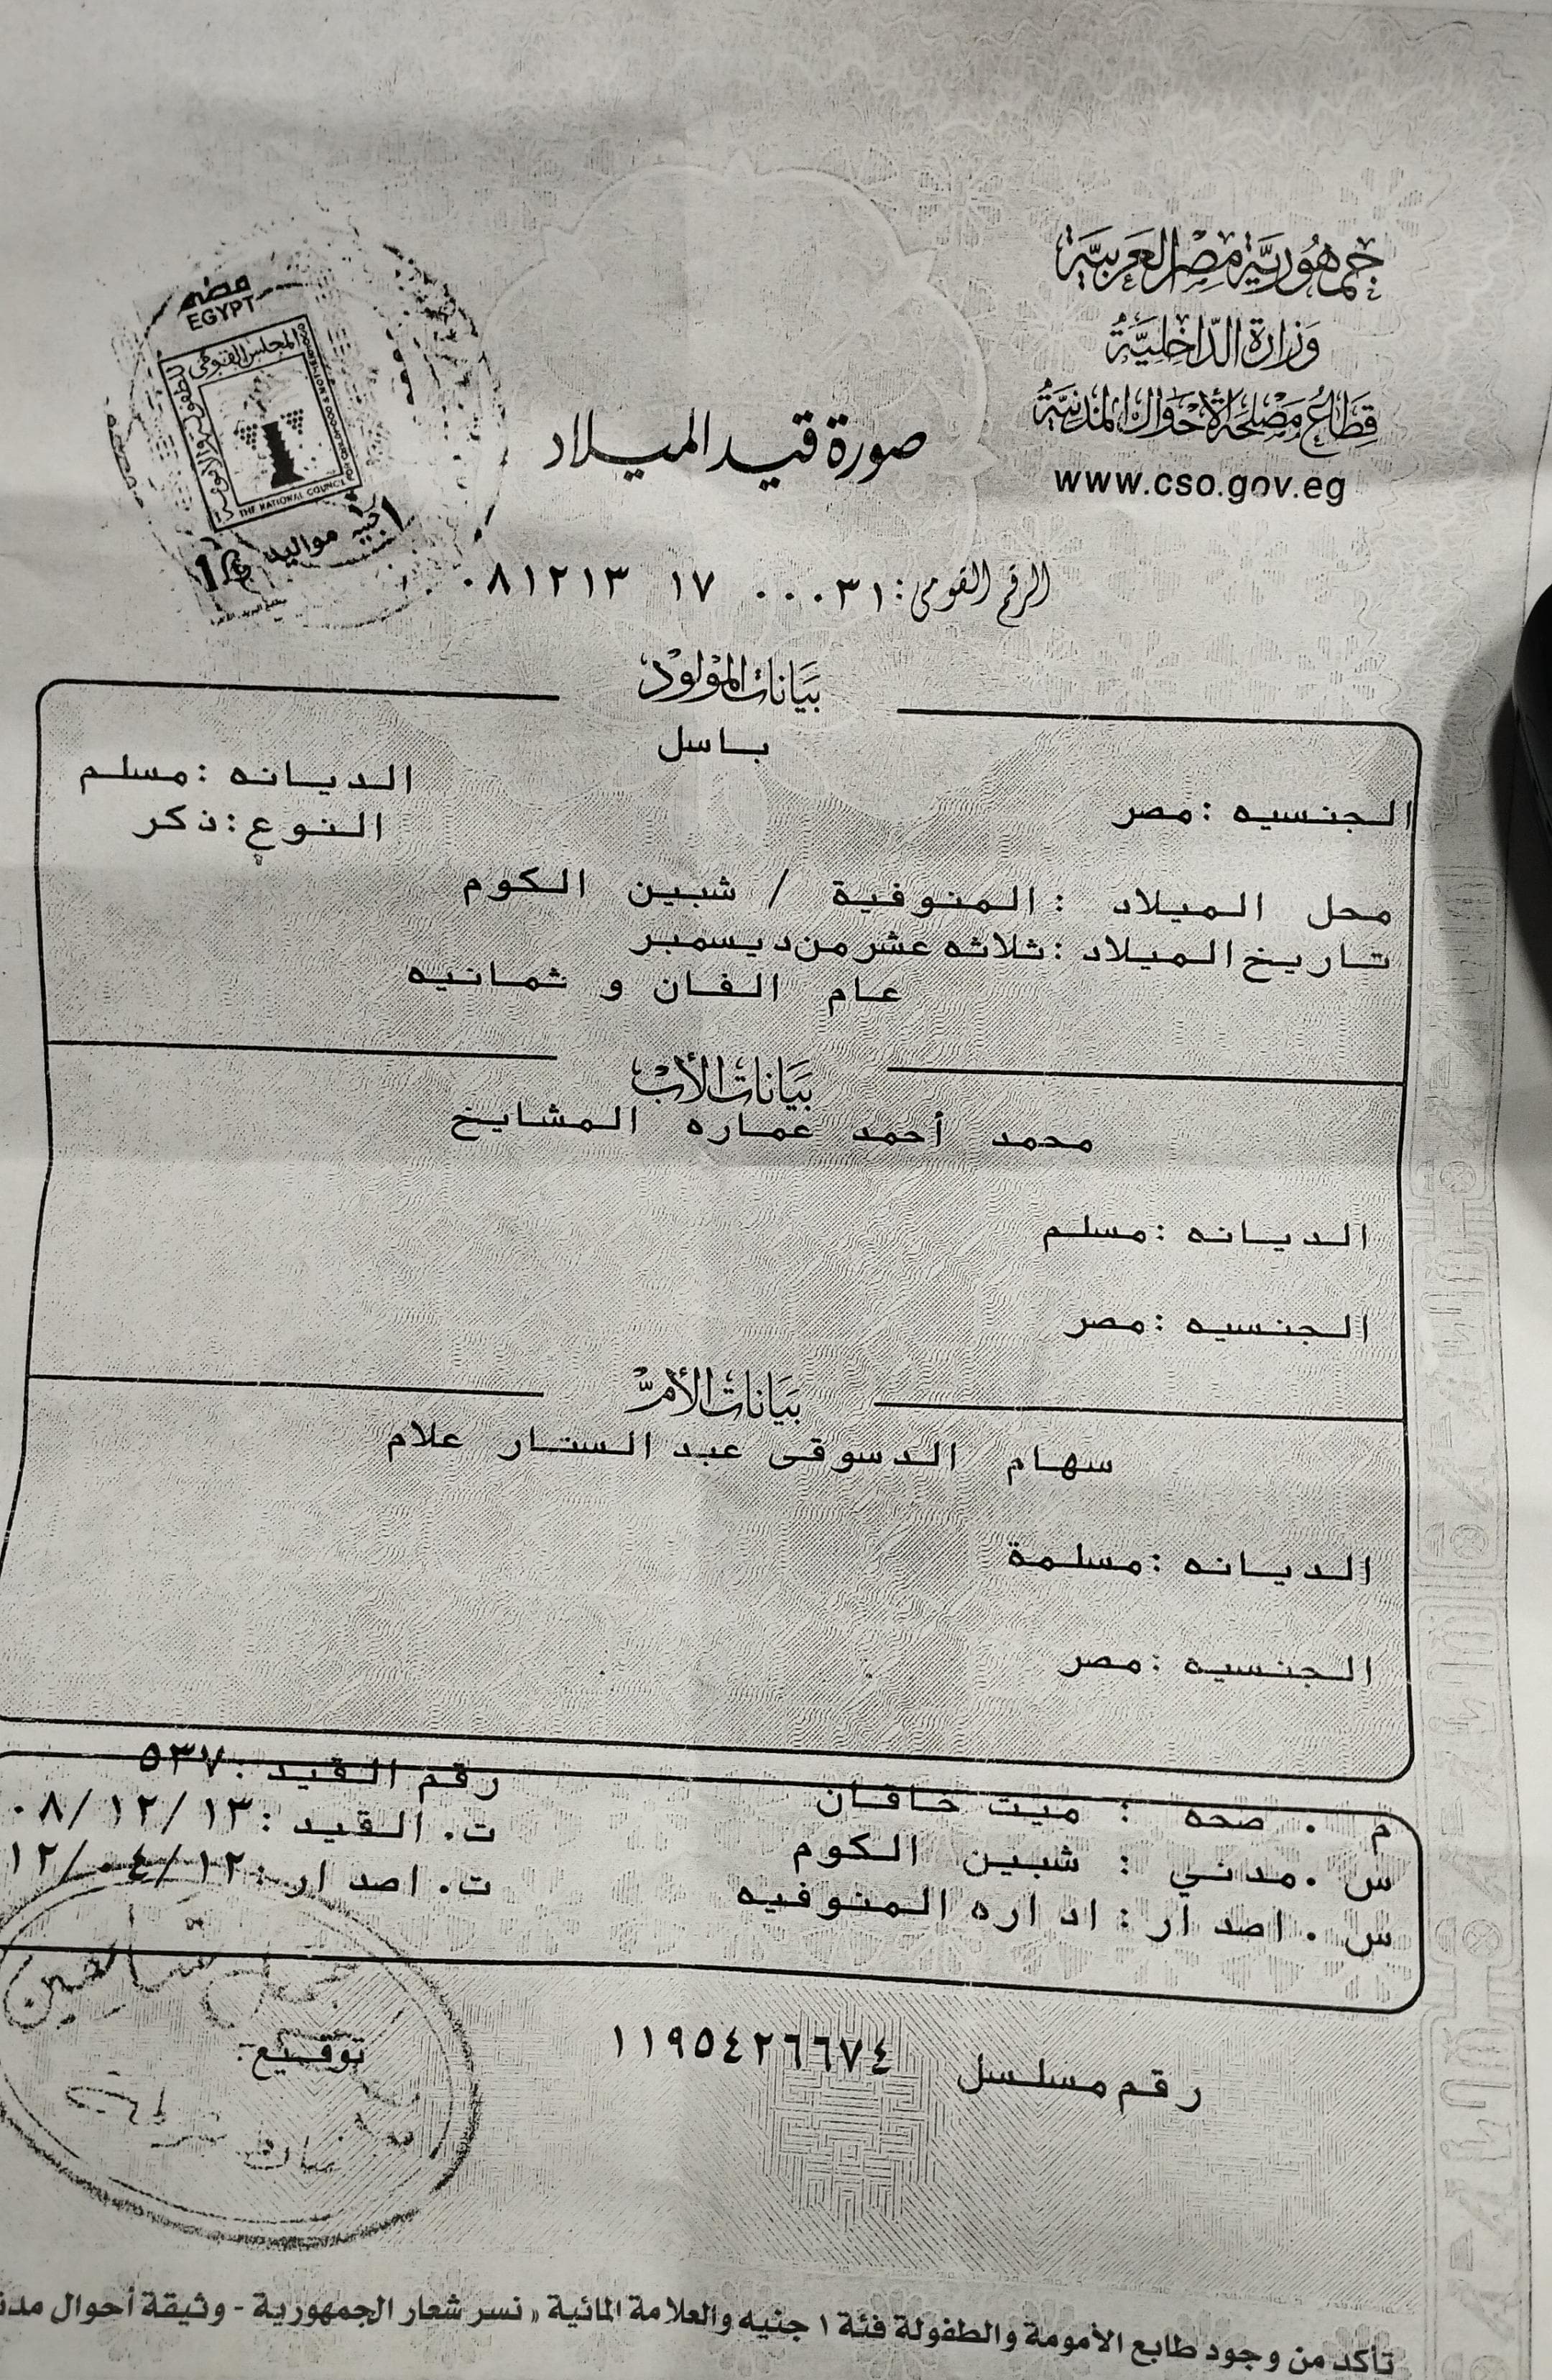 جمهورية مصر العربية
وزارة الداخلية
قطاع مصلحة الأحوال المدنية
www.cso.gov.eg
مصر
EGYPT
المجلس القومى
للطفولة والأمومة
THE NATIONAL COUNCIL FOR CHILDHOOD & MOTHERHOOD
مواليد
صورة قيد الميلاد
الرقم القومى: ٠٨١٢١٣ ١٧ ٠٠٠٣١
بيانات المولود
باسل
الجنسيه : مصر الديانه : مسلم
النوع : ذكر
محل الميلاد : المنوفية / شبين الكوم
تاريخ الميلاد : ثلاثه عشر من ديسمبر
عام الفان و ثمانيه
بيانات الأب
محمد أحمد عماره المشايخ
الديانه : مسلم
الجنسيه : مصر
بيانات الأم
سهام الدسوقى عبد الستار علام
الديانه : مسلمة
الجنسيه : مصر
م . صحه : ميت خاقان رقم القيد : ٥٣٧
س . مدني : شبين الكوم ت . القيد : ٠٨/١٢/١٣
س . اصدار : اداره المنوفيه ت . اصدار : ١٢/٠٤/١٢
رقم مسلسل ١١٩٥٤٢٦٦٧٤
توقيع:
تأكد من وجود طابع الأمومة والطفولة فئة ١ جنيه والعلامة المائية « نسر شعار الجمهورية - وثيقة أحوال